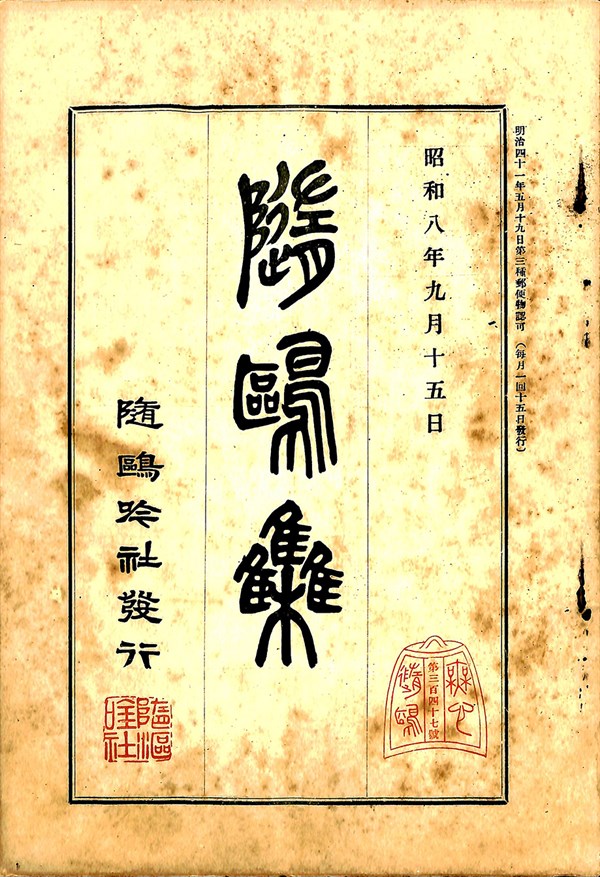 明治四十一年五月十九日第三種郵便物認可 (每月一回十五日發行)
昭和八年九月十五日
無心
第三百四十七號
隨鷗
隨鷗集
隨鷗吟社發行
隨漚唫社